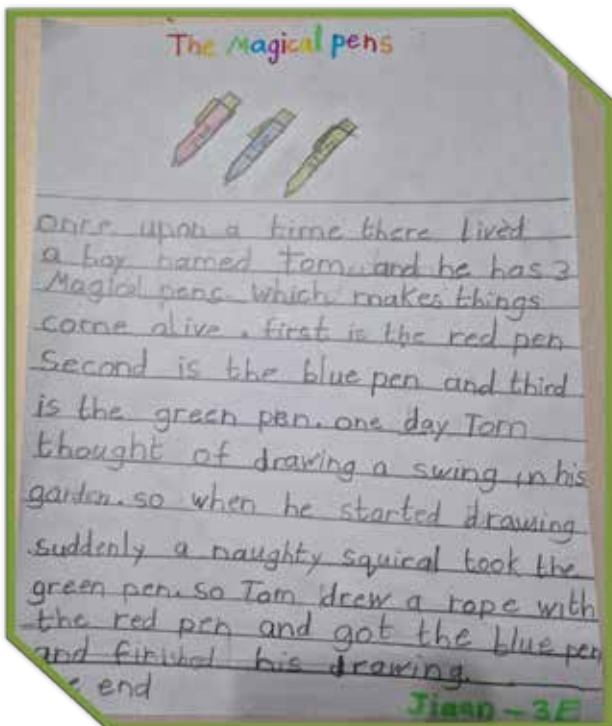 The Magical pens
once upon a time there lived
a boy named Tom. and he has 3
Magical pens. which makes things
come alive. first is the red pen
Second is the blue pen and third
is the green pen. one day Tom
thought of drawing a swing in his
garden. so when he started drawing
suddenly a naughty squical took the
green pen. so Tom drew a rope with
the red pen and got the blue pen
and finished his drawing.
end
Jiaan - 3E